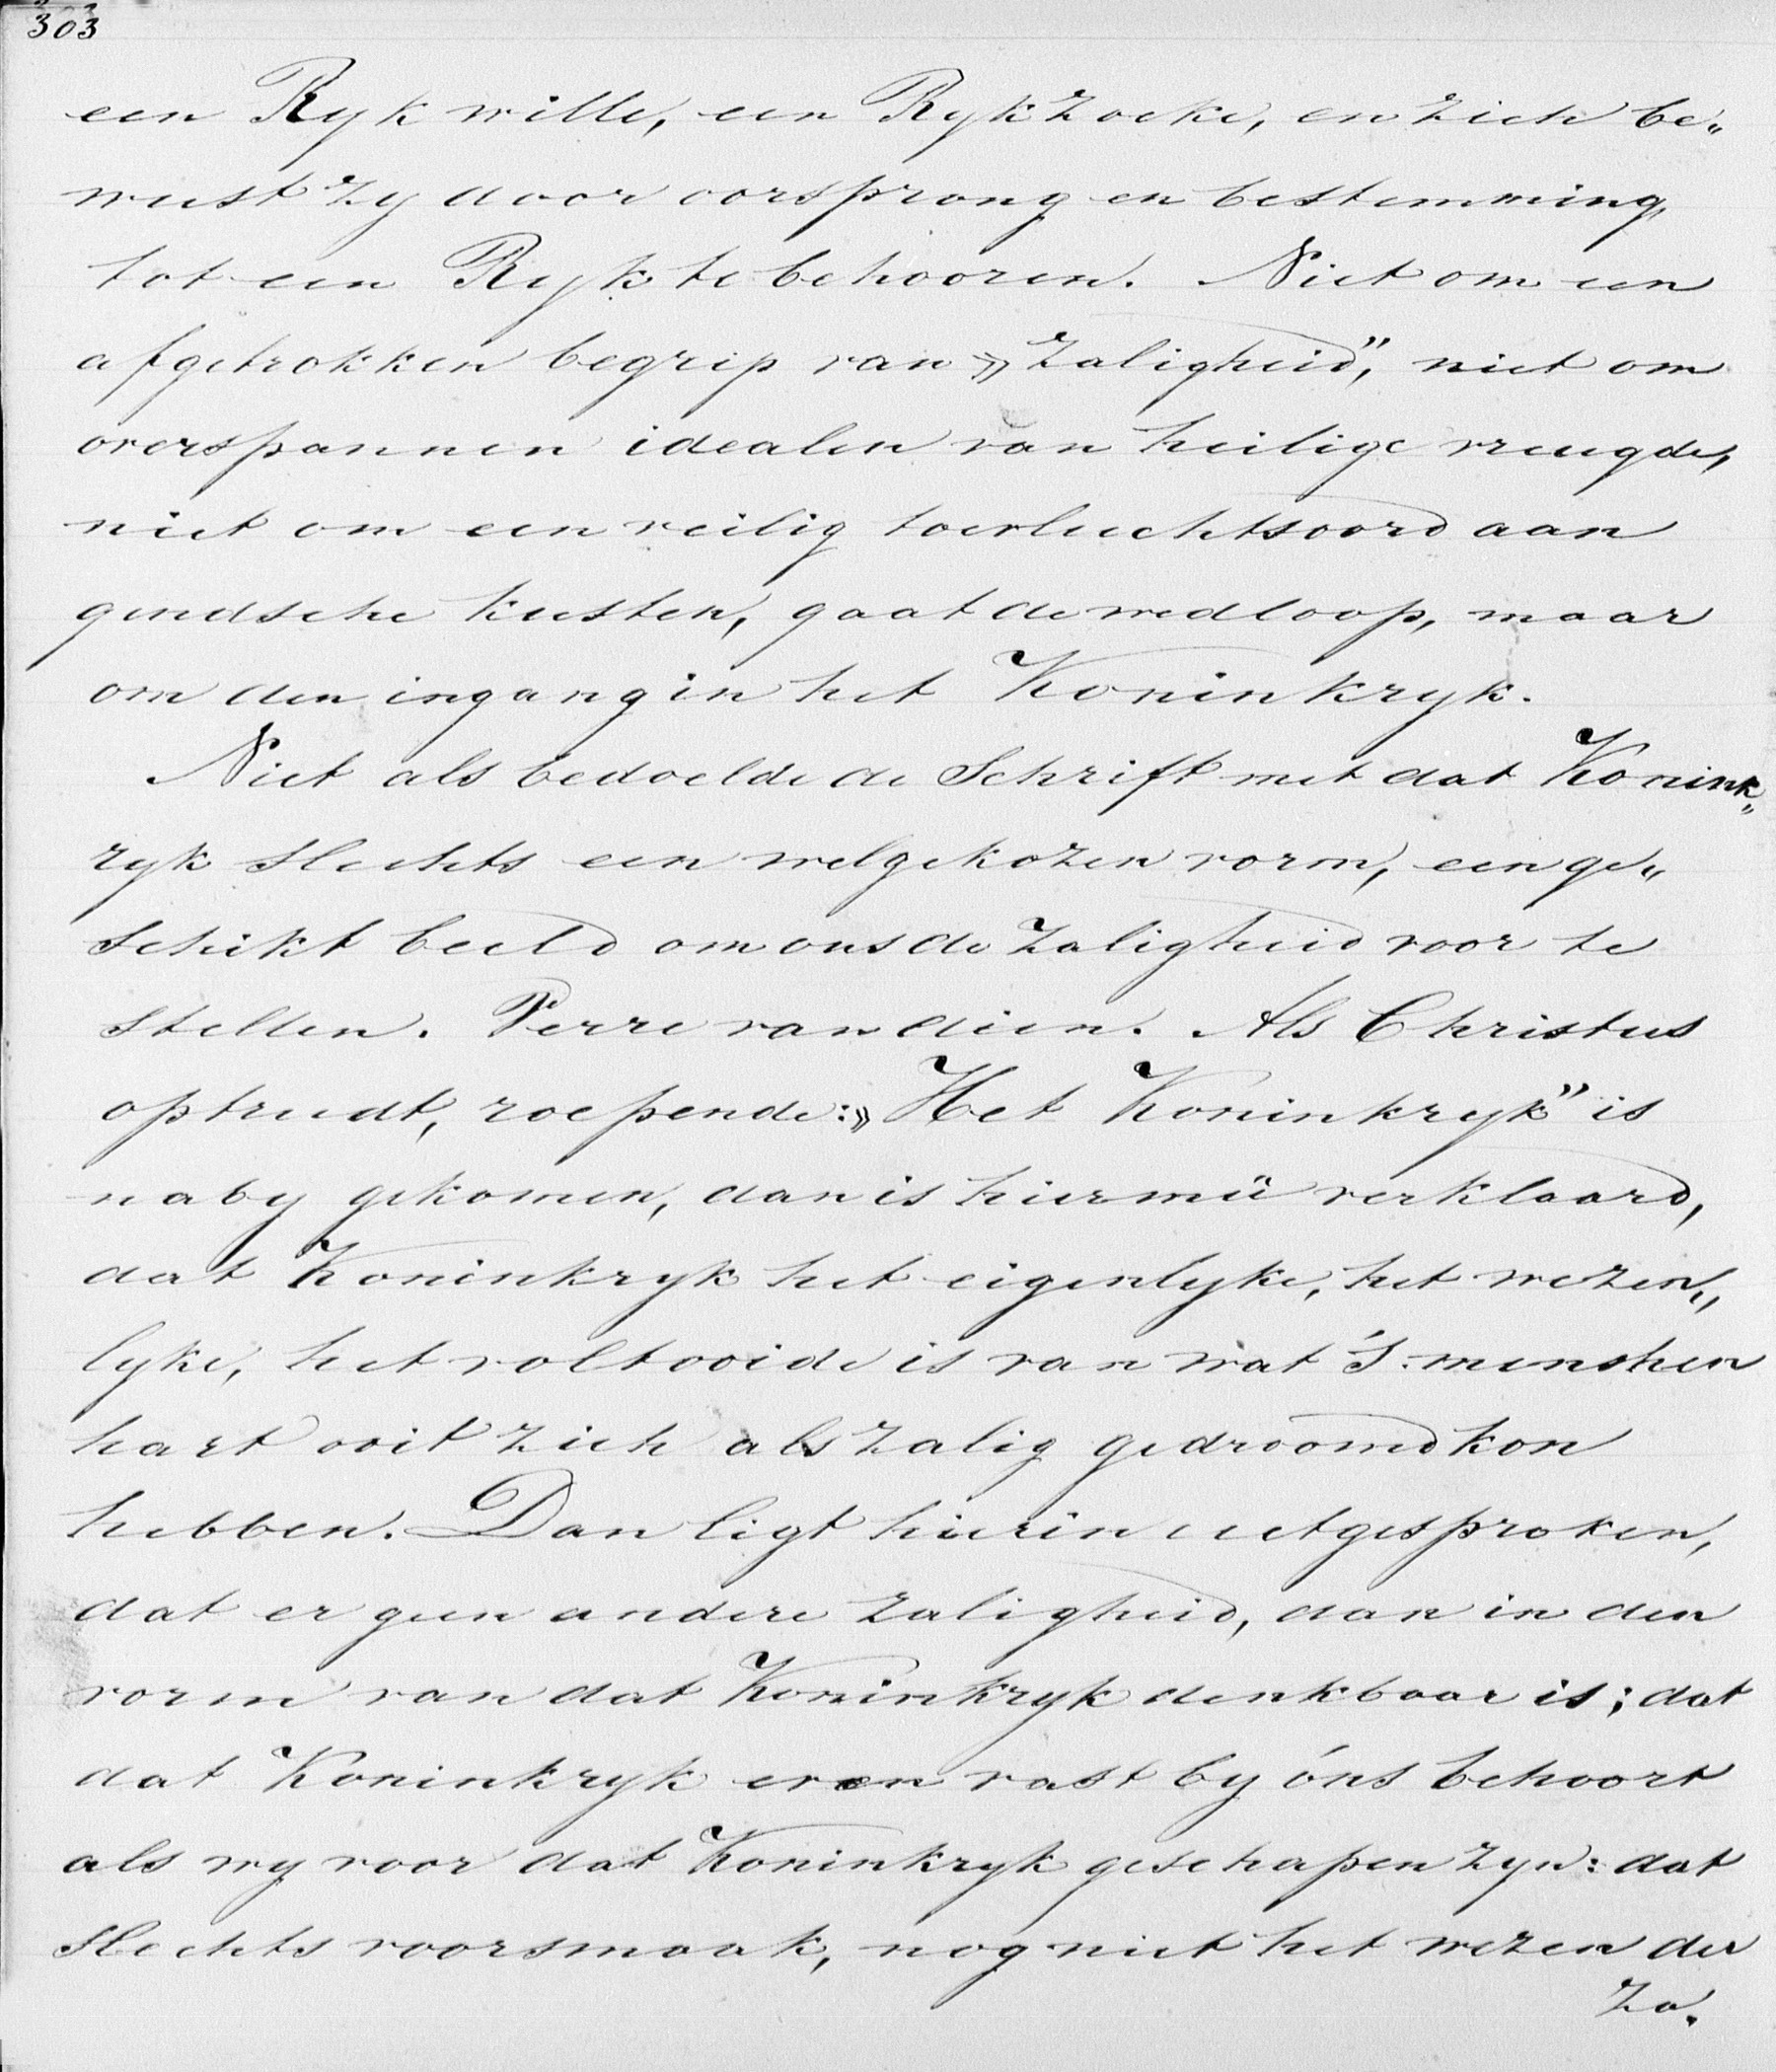 303
een Ryk wille, een Ryk zoeke, en zich be„
wust zy door oorsprong en bestemming,
tot een Ryk te behooren. Niet om een
afgetrokken begrip van „Zaligheid”, niet om
overspannen idealen van heilige vreugde,
niet om een veilig toevluchtsoord aan
gindsche kusten, gaat de wedloop, maar
om den ingang in het Koninkryk.
Niet als bedoelde de Schrift met dat Konink„
ryk slechts een welgekozen vorm, een ge„
schikt beeld om ons de zaligheid voor te
stellen. Verre van dien. Als Christus
optreedt, roepende: „Het Koninkryk” is
naby gekomen, dan is hiermeê verklaard,
dat Koninkryk het eigenlyke, het wezen„
lyke, het voltooide is van wat 's menschen
hart ooit zich als zalig gedroomd kon
hebben. Dan ligt hierin uitgesproken,
dat er geen andere zaligheid, dan in den
vorm van dat Koninkryk denkbaar is; dat
dat Koninkryk even vast by óns behoort
als wy voor dat Koninkryk geschapen zyn: dat
slechts voorsmaak, nog niet het wezen der
za.